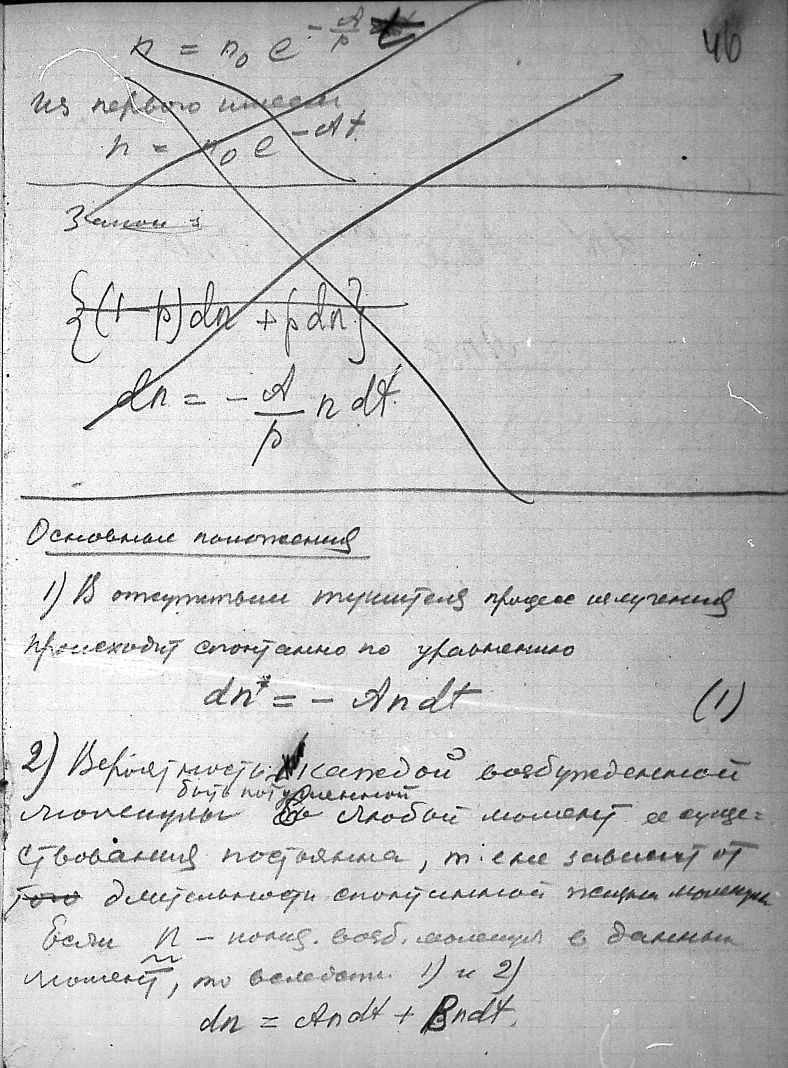 46
n = n₀ e^{-A/p t}
Из первого имеем
n = n₀ e^{-At}.
Закон :
{(1-p)dn + pdn}
dn = - A/p n dt.
Основные положения
1) В отсутствии тушителя процесс излучения
происходит спонтанно по уравнению
dn* = - Andt (1)
2) Вероятность каждой возбужденной
быть потушенной
молекулы в любой момент ее суще=
ствования постоянна, т. е не зависит от
того длительности спонтанной жизни молекулы
Если n - конц. возб. молекул в данный
момент, то вследств. 1) и 2)
dn = Andt + Bndt.